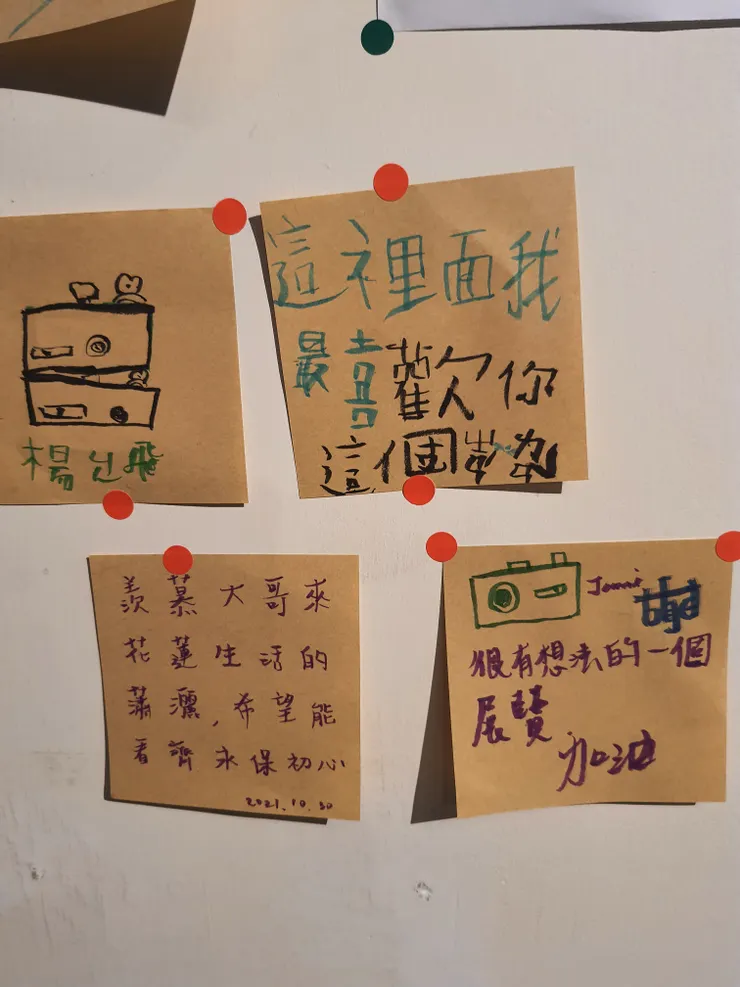 楊
飛
這裡面我
最喜歡你
這個
羨慕大哥來
花蓮生活的
瀟灑,希望能
看齊永保初心
2021.10.30
Jennie
很有想法的一個
展覽
加油